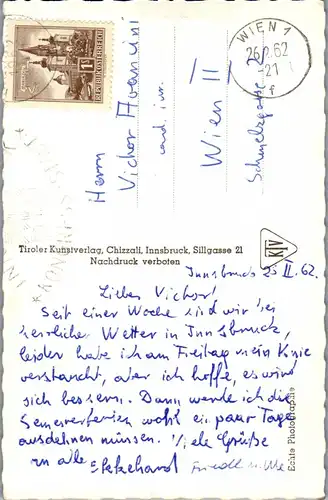 WIEN 1
26.2.62
21
f
REPUBLIK ÖSTERREICH
Herrn
Victor
cand. iur.
Wien II
Tiroler Kunstverlag, Chizzali, Innsbruck, Sillgasse 21
Nachdruck verboten
KTV
Echte Photographie
Innsbruck 25 II. 62.
Lieber Victor!
Seit einer Woche sind wir bei
herrlichem Wetter in Innsbruck,
leider habe ich am Freitag mein Knie
verstaucht, aber ich hoffe, es wird
sich bessern. Dann werde ich die
Semesterferien wohl ein paar Tage
ausdehnen müssen. Viele Grüße
an alle Ekkehard
Friedl